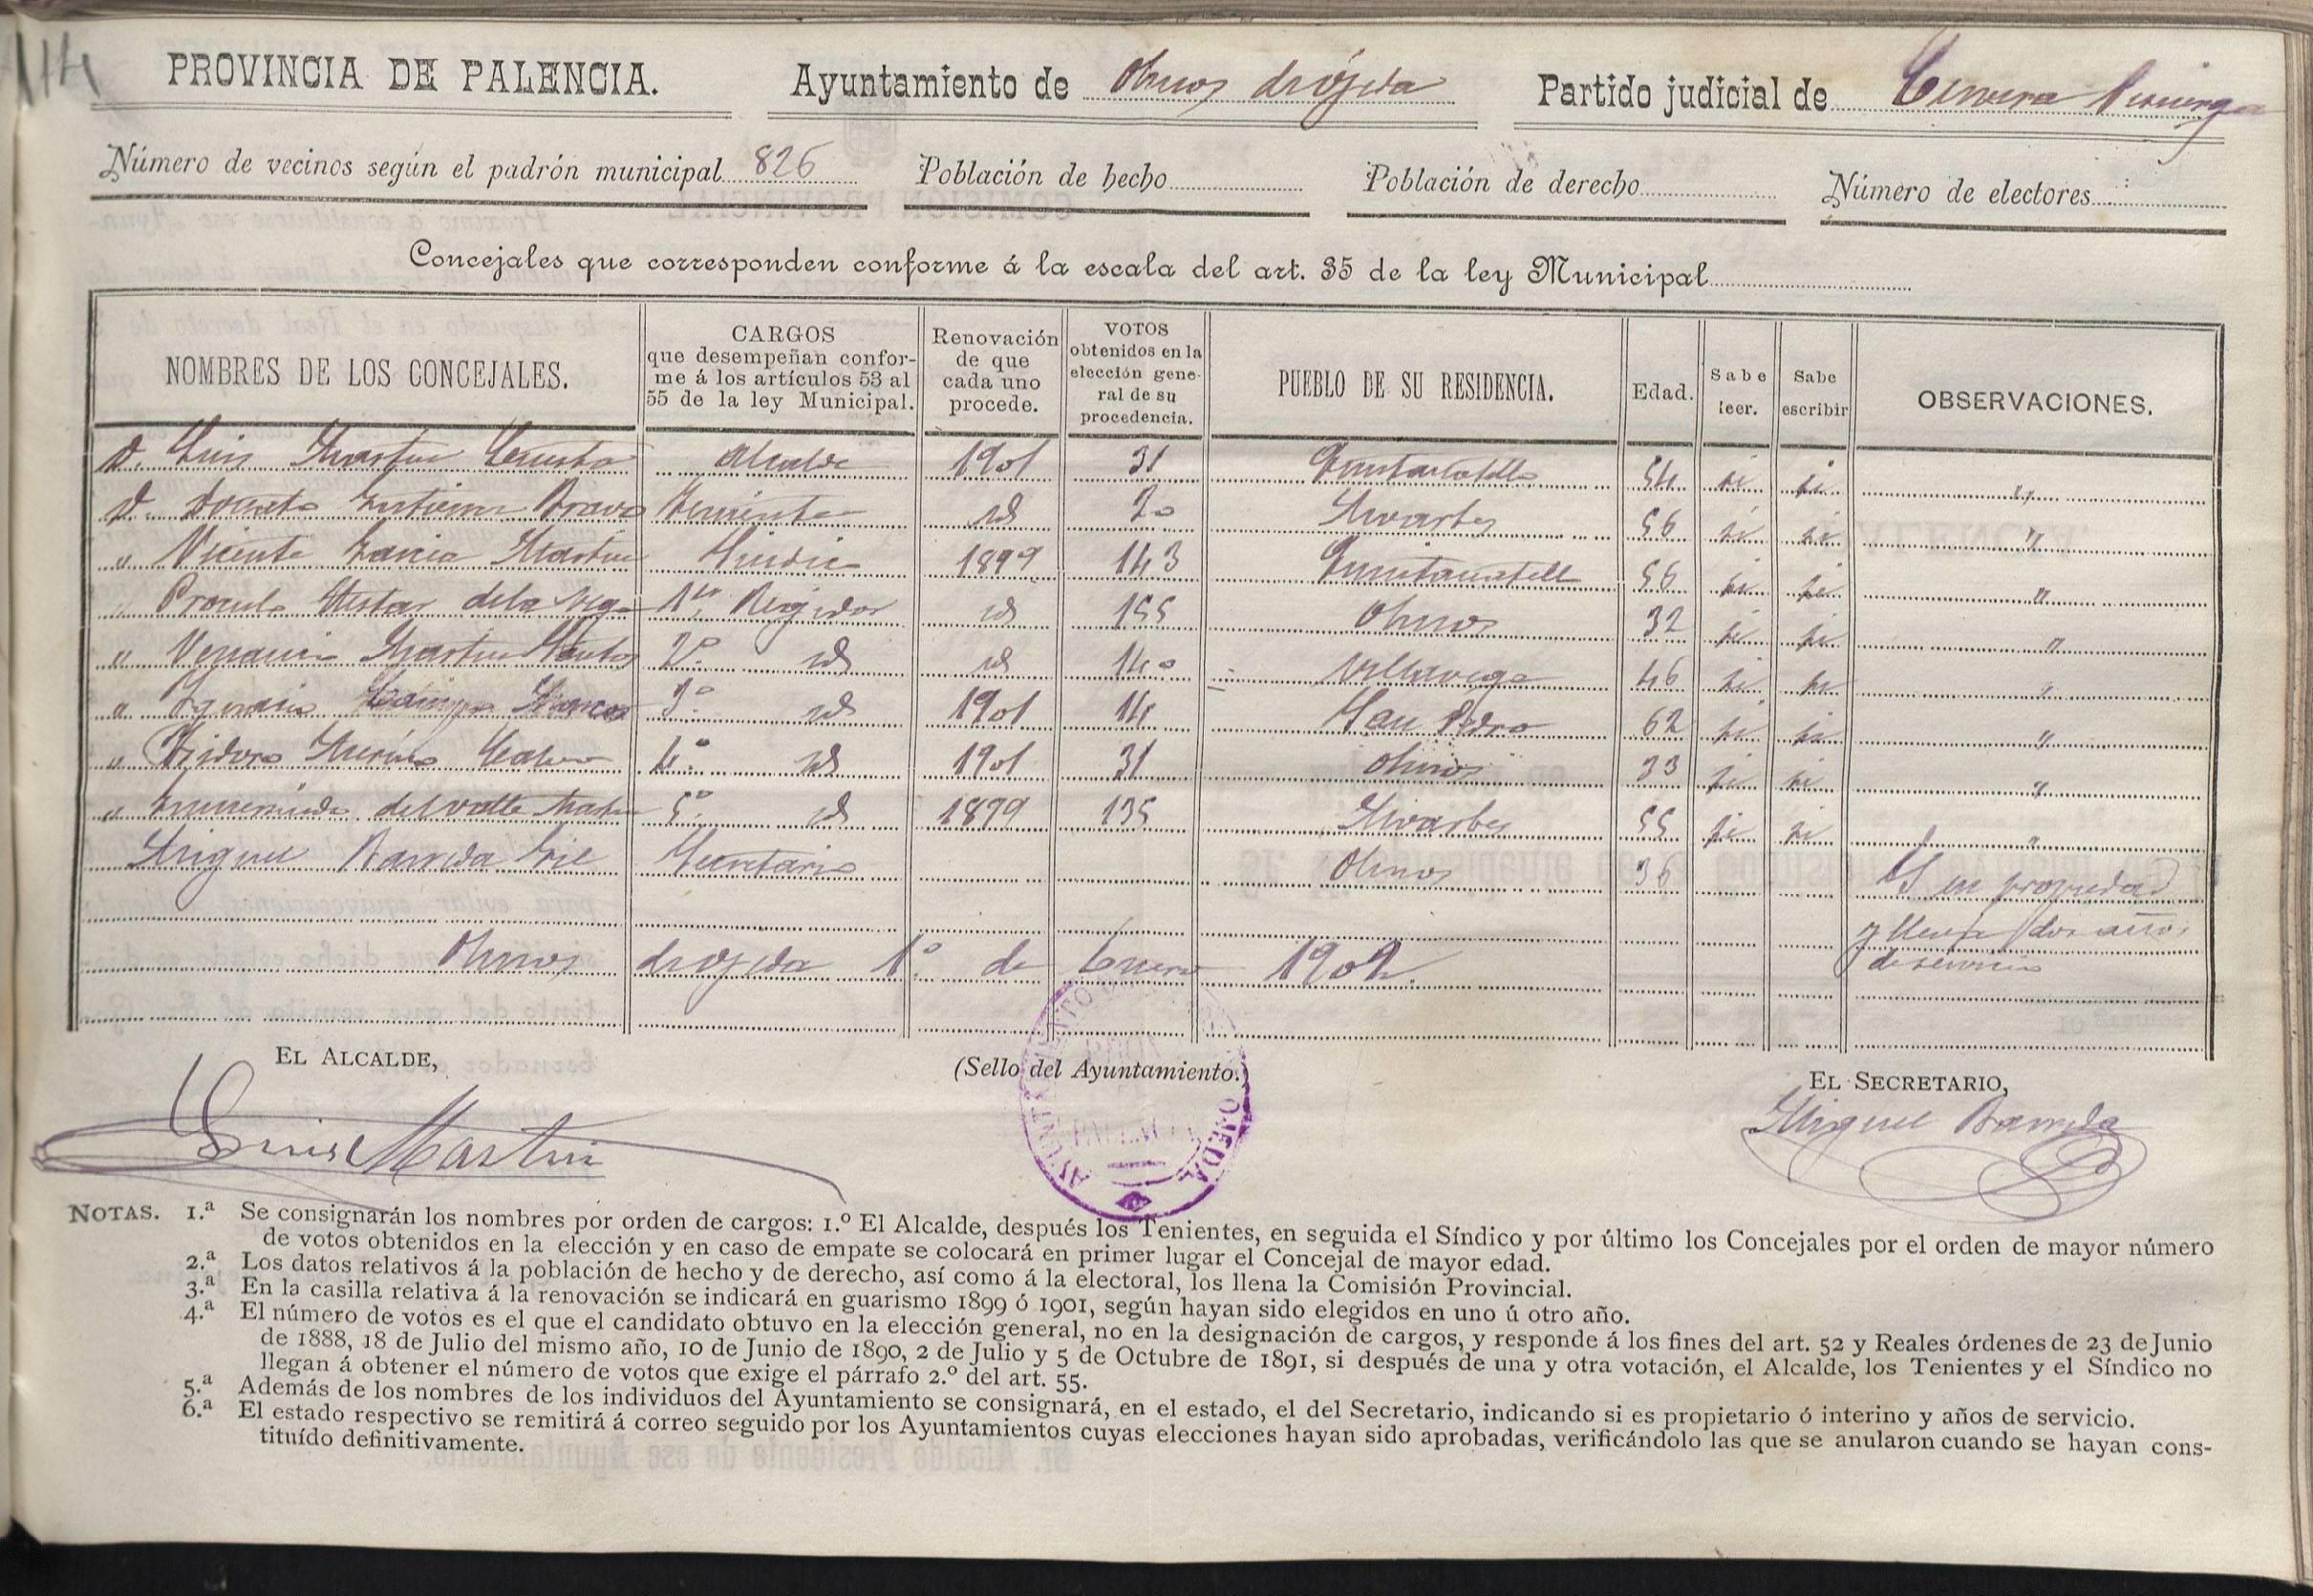 114
PROVINCIA DE PALENCIA. Ayuntamiento de Olmos de Ojeda Partido judicial de Cervera Pisuerga
Número de vecinos según el padrón municipal 826 Población de hecho Población de derecho Número de electores
Concejales que corresponden conforme á la escala del art. 35 de la ley Municipal
NOMBRES DE LOS CONCEJALES. CARGOS que desempeñan conforme á los artículos 53 al 55 de la ley Municipal. Renovación de que cada uno procede. VOTOS obtenidos en la elección general de su procedencia. PUEBLO DE SU RESIDENCIA. Edad. Sabe leer. Sabe escribir OBSERVACIONES.
D. Luis Martin Cuesta Alcalde 1901 31 54 si si "
D. Gutierrez Bravo Teniente id 20 Moarbes 56 si si "
" Vicente Garcia Martin Sindico 1899 143 56 si si "
" Proculo de la Vega 1er Regidor id 155 Olmos 32 si si "
" Venancio Martin 2º id id 140 Villavega 46 si si "
" Ignacio 3º id 1901 14 San Pedro 62 si si "
" Isidoro 4º id 1901 31 Olmos 33 si si "
" Gumersindo del Valle 5º id 1899 135 Moarbes 55 si si "
Miguel Barreda Gil Secretario Olmos 36 Es en propiedad
y lleva dos años
de servicio
Olmos de Ojeda 1º de Enero 1902.
EL ALCALDE, (Sello del Ayuntamiento.) EL SECRETARIO,
Luis Martin Miguel Barreda
NOTAS. 1.ª Se consignarán los nombres por orden de cargos: 1.º El Alcalde, después los Tenientes, en seguida el Síndico y por último los Concejales por el orden de mayor número
de votos obtenidos en la elección y en caso de empate se colocará en primer lugar el Concejal de mayor edad.
2.ª Los datos relativos á la población de hecho y de derecho, así como á la electoral, los llena la Comisión Provincial.
3.ª En la casilla relativa á la renovación se indicará en guarismo 1899 ó 1901, según hayan sido elegidos en uno ú otro año.
4.ª El número de votos es el que el candidato obtuvo en la elección general, no en la designación de cargos, y responde á los fines del art. 52 y Reales órdenes de 23 de Junio
de 1888, 18 de Julio del mismo año, 10 de Junio de 1890, 2 de Julio y 5 de Octubre de 1891, si después de una y otra votación, el Alcalde, los Tenientes y el Síndico no
llegan á obtener el número de votos que exige el párrafo 2.º del art. 55.
5.ª Además de los nombres de los individuos del Ayuntamiento se consignará, en el estado, el del Secretario, indicando si es propietario ó interino y años de servicio.
6.ª El estado respectivo se remitirá á correo seguido por los Ayuntamientos cuyas elecciones hayan sido aprobadas, verificándolo las que se anularon cuando se hayan cons-
tituído definitivamente.